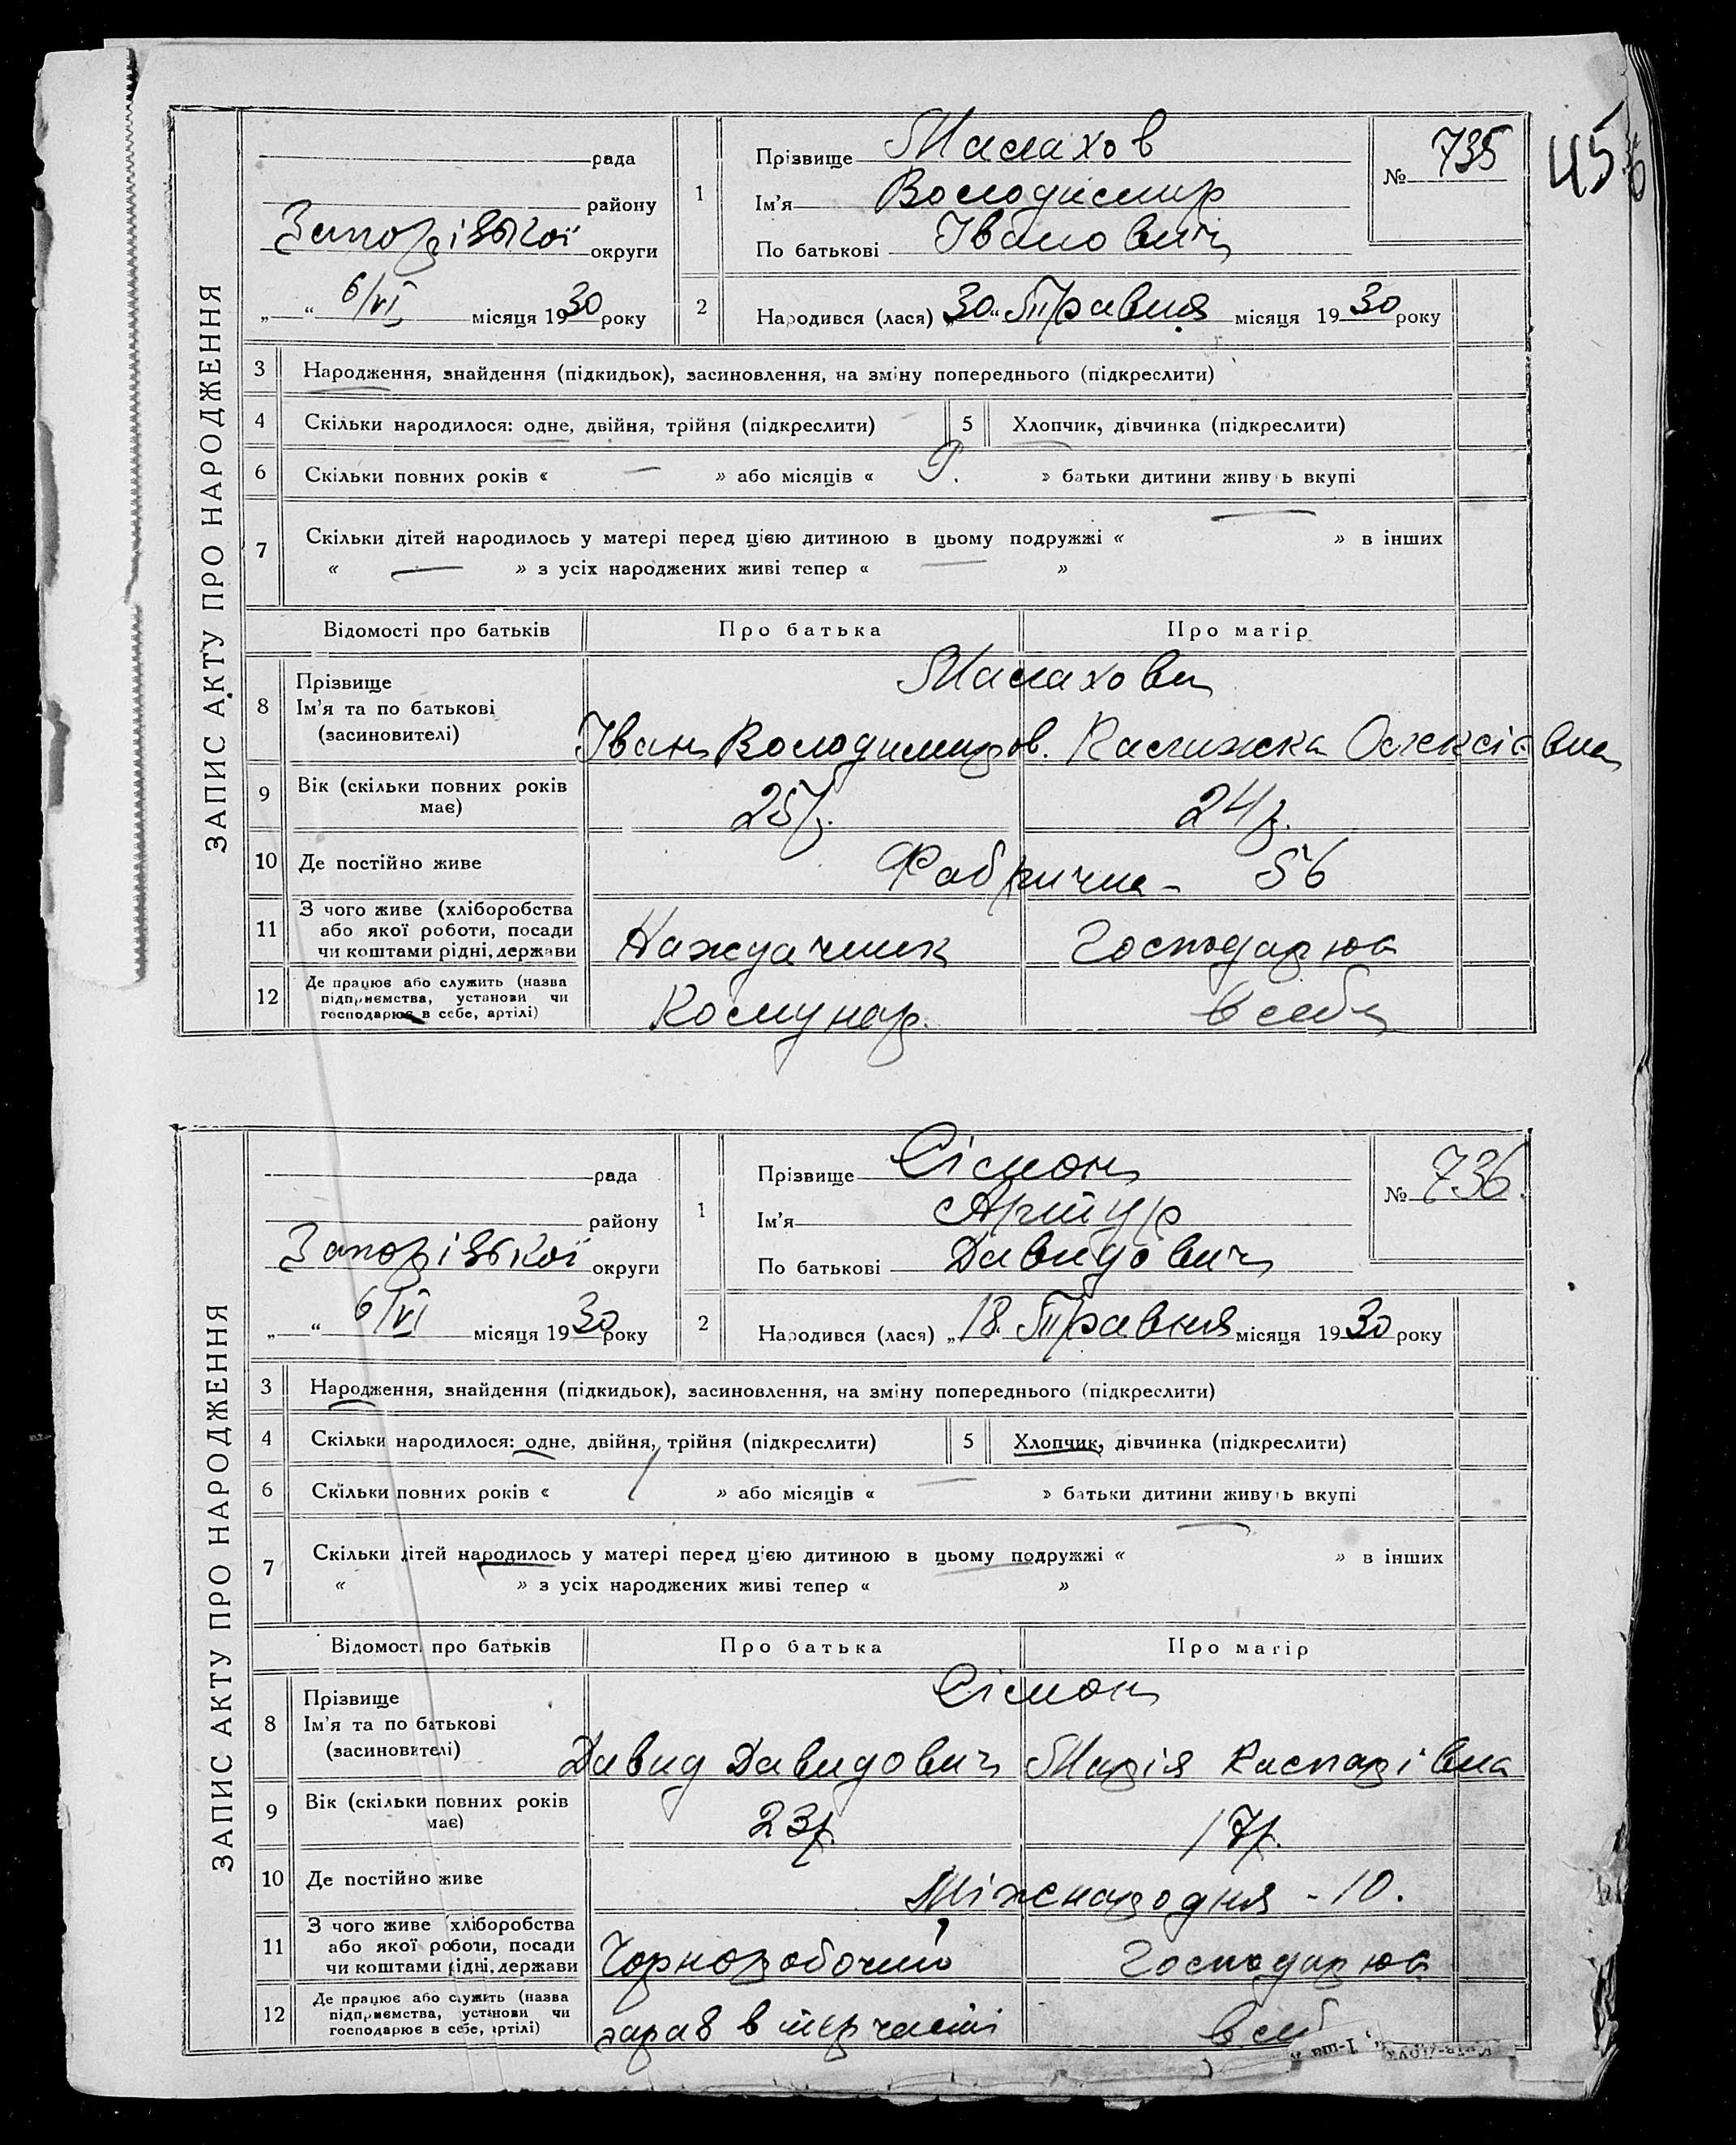 45
ЗАПИС АКТУ ПРО НАРОДЖЕННЯ
рада
району
Запорізької округи
„ “ 6/VI місяця 1930 року
1 Прізвище Малахов
Ім'я Володимир
По батькові Іванович
№ 735
2 Народився (лася) „30“ Травня місяця 1930 року
3 Народження, знайдення (підкидьок), засиновлення, на зміну попереднього (підкреслити)
4 Скільки народилося: одне, двійня, трійня (підкреслити) 5 Хлопчик, дівчинка (підкреслити)
6 Скільки повних років « — » або місяців « 9. » батьки дитини живуть вкупі
7 Скільки дітей народилось у матері перед цією дитиною в цьому подружжі « — » в інших
« — » з усіх народжених живі тепер « — »
Відомості про батьків Про батька Про матір
8 Прізвище Малахови
Ім'я та по батькові
(засиновителі) Іван Володимиров. Олексіївна
9 Вік (скільки повних років має) 25 р. 24 р.
10 Де постійно живе Фабрична - 56
11 З чого живе (хліборобства або якої роботи, посади чи коштами рідні, держави Наждачник Господарює
12 Де працює або служить (назва підприємства, установи чи господарює в себе, артілі) Комунар. в себе
ЗАПИС АКТУ ПРО НАРОДЖЕННЯ
рада
району
Запорізької округи
„ “ 6/VI місяця 1930 року
1 Прізвище Сімон
Ім'я Артур
По батькові Давидович
№ 736.
2 Народився (лася) „18. Травня місяця 1930 року
3 Народження, знайдення (підкидьок), засиновлення, на зміну попереднього (підкреслити)
4 Скільки народилося: одне, двійня, трійня (підкреслити) 5 Хлопчик, дівчинка (підкреслити)
6 Скільки повних років « 1 » або місяців « — » батьки дитини живуть вкупі
7 Скільки дітей народилось у матері перед цією дитиною в цьому подружжі « — » в інших
« » з усіх народжених живі тепер « »
Відомості про батьків Про батька Про матір
8 Прізвище Сімон
Ім'я та по батькові
(засиновителі) Давид Давидович Марія Каспарівна
9 Вік (скільки повних років має) 23 р. 17 р.
10 Де постійно живе Міжнародня - 10.
11 З чого живе (хліборобства або якої роботи, посади чи коштами рідні, держави Чорноробочий Господарює
12 Де працює або служить (назва підприємства, установи чи господарює в себе, артілі) зараз в в себ